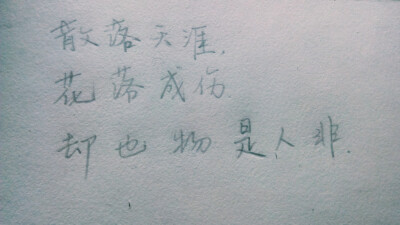 散落天涯.
花落成伤.
却也物是人非.